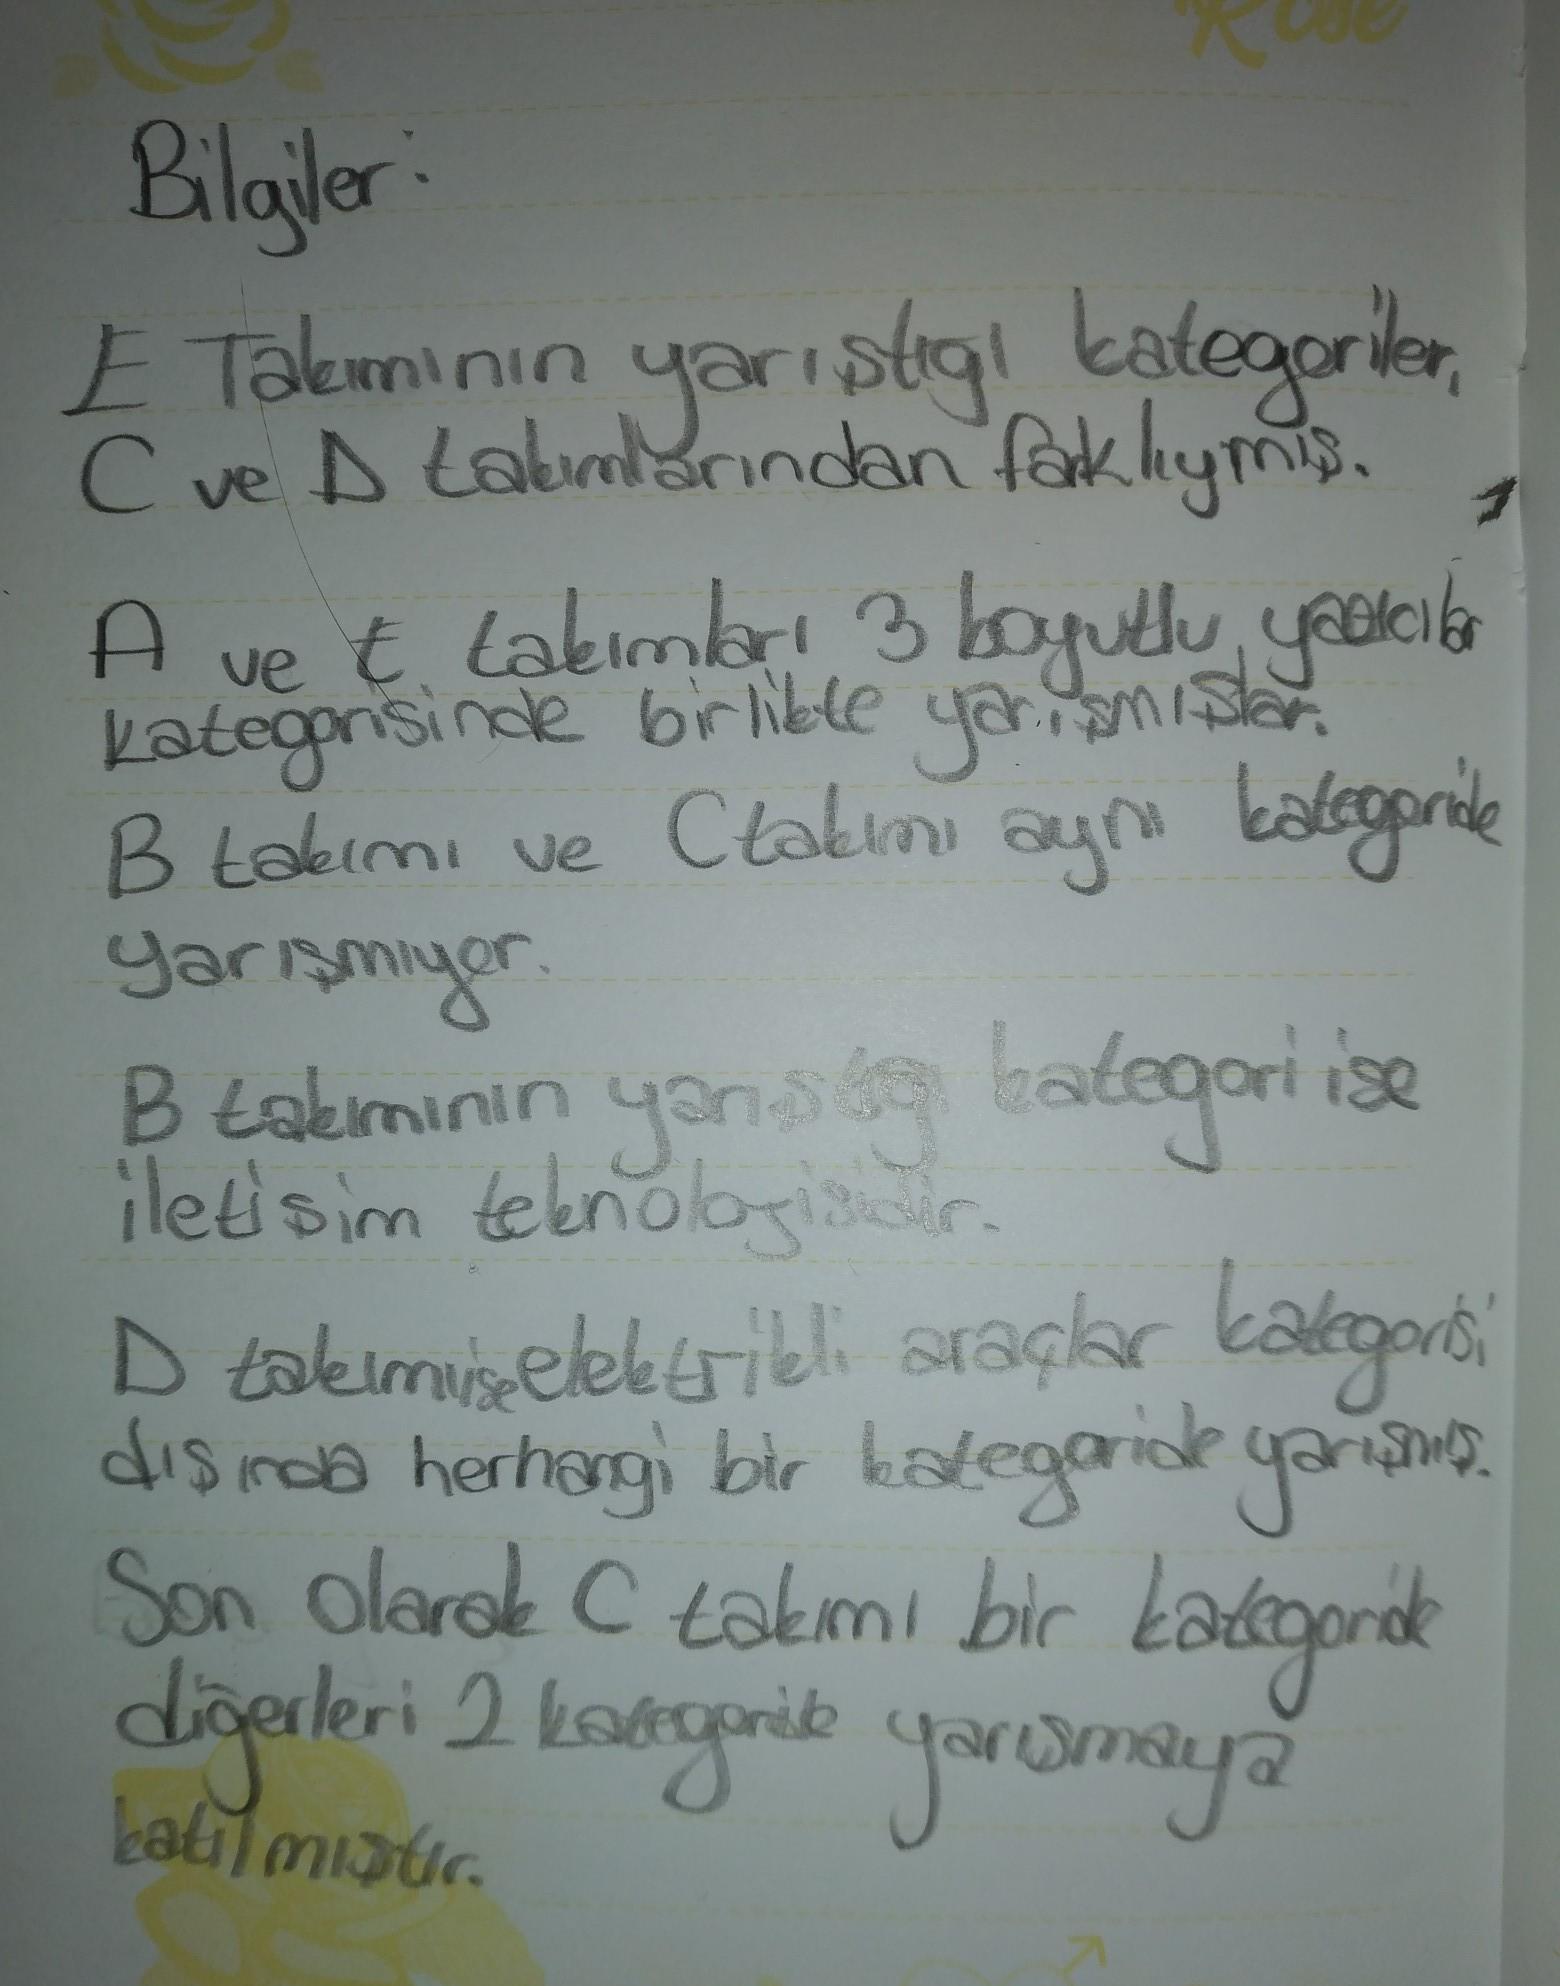 Rose
Bilgiler:
E Takımının yarıştıgı kategoriler,
C ve D takımlarından farklıymış.
A ve E takımları 3 boyutlu yazıcılar
kategorisinde birlikte yarışmışlar.
B takımı ve C takımı aynı kategoride
yarışmıyor.
B takımının yarıştıgı kategori ise
iletisim teknolojisidir.
D takımı ise elektrikli araçlar kategorisi
dışında herhangi bir kategoride yarışmış.
Son olarak C takımı bir kategoride
diğerleri 2 kategoride yarışmaya
katılmıştır.